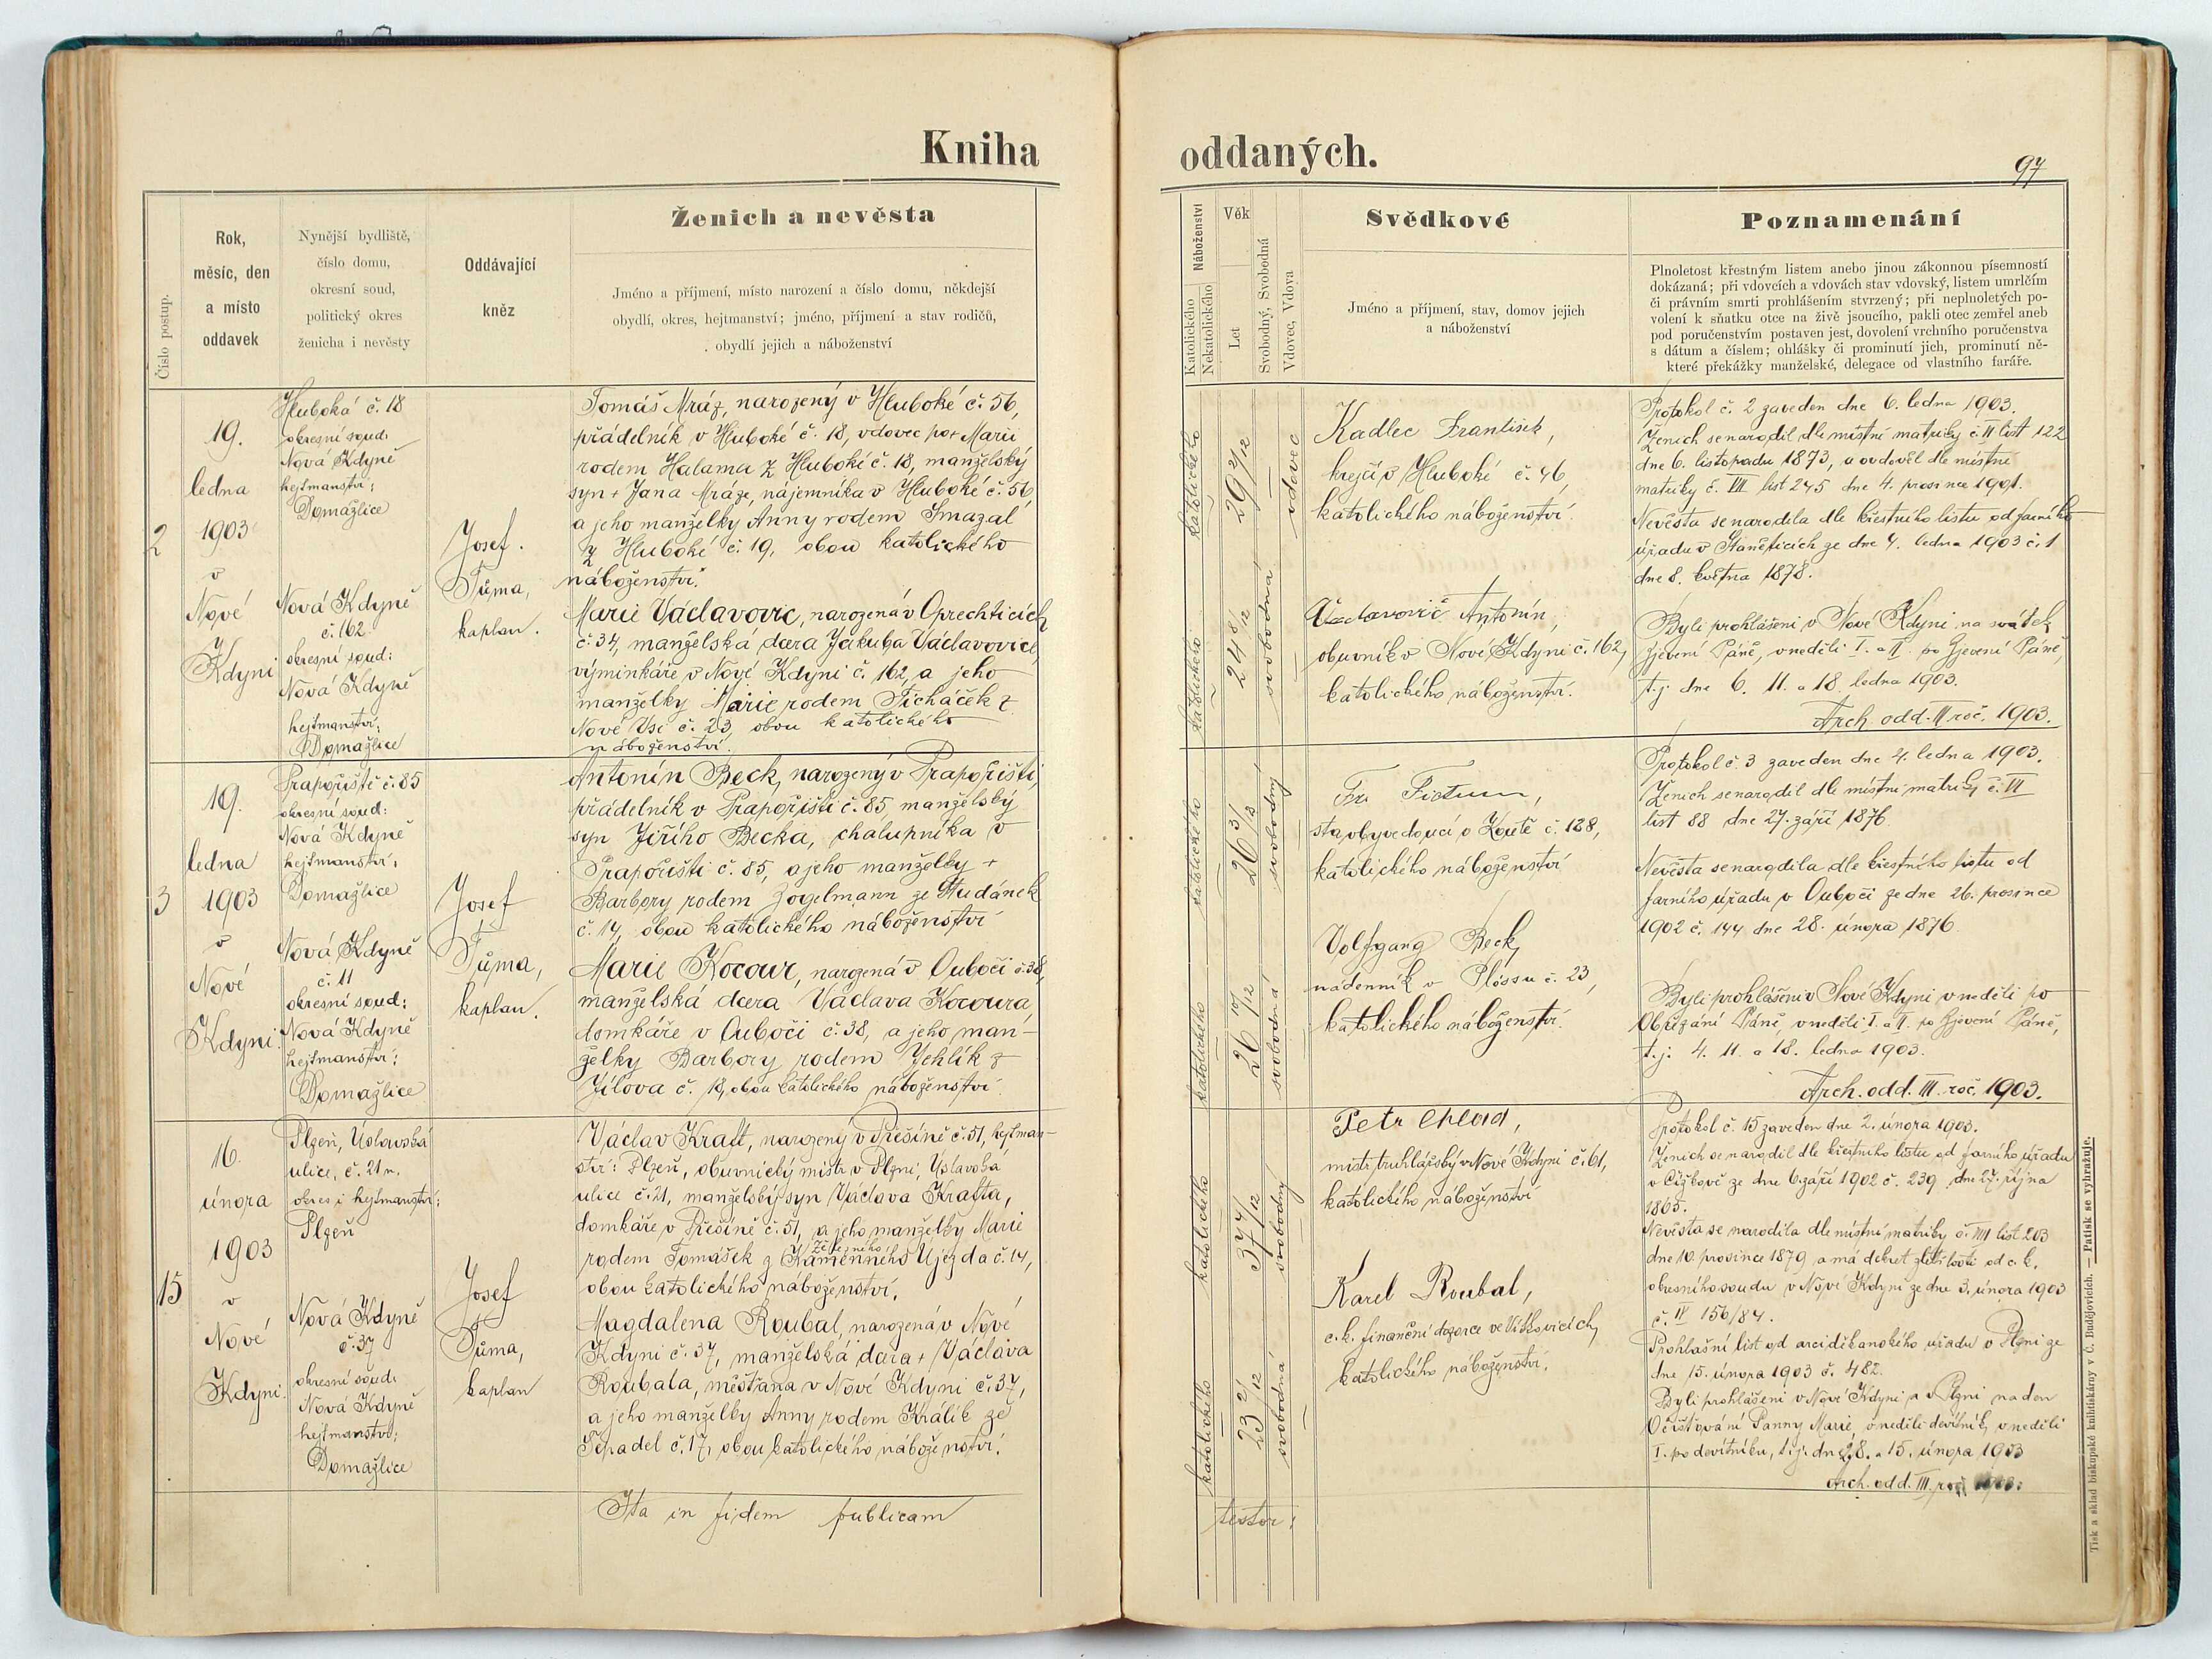 Kniha
oddaných.
97
Číslo postup.
Rok,
měsíc, den
a místo
oddavek
Nynější bydliště,
číslo domu,
okresní soud,
politický okres
ženicha i nevěsty
Oddávající
kněz
Ženich a nevěsta
Jméno a příjmení, místo narození a číslo domu, někdejší
obydlí, okres, hejtmanství; jméno, příjmení a stav rodičů,
obydlí jejich a náboženství
Náboženství
Katolického
Nekatolického
Věk
Let
Svobodný, Svobodná
Vdovec, Vdova
Svědkové
Jméno a příjmení, stav, domov jejich
a náboženství
Poznamenání
Plnoletost křestným listem anebo jinou zákonnou písemností
dokázaná; při vdovcích a vdovách stav vdovský, listem umrlčím
či právním smrti prohlášením stvrzený; při neplnoletých po-
volení k sňatku otce na živě jsoucího, pakli otec zemřel aneb
pod poručenstvím postaven jest, dovolení vrchního poručenstva
s dátum a číslem; ohlášky či prominutí jich, prominutí ně-
které překážky manželské, delegace od vlastního faráře.
2
19.
ledna
1903
v
Nové
Kdyni
Hluboká č. 18
okresní soud:
Nová Kdyně
hejtmanství:
Domažlice
Nová Kdyně
č. 162
okresní soud:
Nová Kdyně
hejtmanství:
Domažlice
Josef
Tůma,
kaplan.
Tomáš Mráz, narozený v Hluboké č. 56,
přádelník v Hluboké č. 18, vdovec po + Marii
rodem Halama z Hluboké č. 18, manželský
syn + Jana Mráze, nájemníka v Hluboké č. 56
a jeho manželky Anny rodem Smazal
z Hluboké č. 19, obou katolického
náboženství.
Marie Václavovic, narozená v Oprechticích
č. 34, manželská dcera Jakuba Václavovice,
výminkáře v Nové Kdyni č. 162, a jeho
manželky Marie rodem Ticháček z
Nové Vsi č. 23, obou katolického
náboženství.
katolického
29 2/12
vdovec
katolického
24 8/12
svobodná
Kadlec František,
krejčí v Hluboké č. 46,
katolického náboženství.
Václavovič Antonín,
obuvník v Nové Kdyni č. 162,
katolického náboženství.
Protokol č. 2 zaveden dne 6. ledna 1903.
Ženich se narodil dle místní matriky č. II list 122
dne 6. listopadu 1873, a ovdověl dle místní
matriky č. VII list 245 dne 4. prosince 1901.
Nevěsta se narodila dle křestního listu od farního
úřadu v Staněticích ze dne 4. ledna 1903 č. 1
dne 8. května 1878.
Byli prohlášeni v Nové Kdyni na svátek
Zjevení Páně, v neděli I. a II. po Zjevení Páně,
t. j. dne 6. 11. a 18. ledna 1903.
Arch. odd. II roč. 1903.
3
19.
ledna
1903
v
Nové
Kdyni.
Prapořiště č. 85
okresní soud:
Nová Kdyně
hejtmanství:
Domažlice
Nová Kdyně
č. 11
okresní soud:
Nová Kdyně
hejtmanství:
Domažlice
Josef
Tůma,
kaplan.
Antonín Beck, narozený v Prapořišti,
přádelník v Prapořišti č. 85 manželský
syn Jiřího Becka, chalupníka v
Prapořišti č. 85, a jeho manželky +
Barbory rodem Zogelmann ze Studánek
č. 14, obou katolického náboženství
Marie Kocour, narozená v Oubočí č. 38,
manželská dcera Václava Kocoura,
domkáře v Oubočí č. 38, a jeho man-
želky Barbory rodem Jehlík z
Jílova č. 18, obou katolického náboženství.
katolického
26 3/12
svobodný
katolického
26 10/12
svobodná
Fr. Fictum,
stavbyvedoucí v Koutě č. 128,
katolického náboženství
Volfgang Beck,
nádenník v Plössu č. 23,
katolického náboženství.
Protokol č. 3 zaveden dne 4. ledna 1903.
Ženich se narodil dle místní matriky č. VI
list 88 dne 27. září 1876.
Nevěsta se narodila dle křestního listu od
farního úřadu v Oubočí ze dne 26. prosince
1902 č. 144 dne 28. února 1876.
Byli prohlášeni v Nové Kdyni v neděli po
Obřezání Páně, v neděli I. a II. po Zjevení Páně,
t. j. 4. 11. a 18. ledna 1903.
Arch. odd. III. roč. 1903.
15
16.
února
1903
v
Nové
Kdyni.
Plzeň, Úslavská
ulice, č. 21 n.
okres i hejtmanství:
Plzeň
Nová Kdyně
č. 37
okresní soud:
Nová Kdyně
hejtmanství:
Domažlice
Josef
Tůma,
kaplan
Václav Kraft, narozený v Přešíně č. 51, hejtman-
ství: Plzeň, obuvnický mistr v Plzni, Úslavská
ulice č. 21, manželský syn Václava Krafta,
domkáře v Přešíně č. 51, a jeho manželky Marie
Železného
rodem Tomášek z Kamenného Újezda č. 14,
obou katolického náboženství.
Magdalena Roubal, narozená v Nové
Kdyni č. 37, manželská dcera + Václava
Roubala, měšťana v Nové Kdyni č. 37,
a jeho manželky Anny rodem Králík ze
Sepadel č. 17, obou katolického náboženství.
katolického
37 4/12
svobodný
katolického
23 2/12
svobodná
Petr Chlad,
mistr truhlářský v Nové Kdyni č. 61,
katolického náboženství
Karel Roubal,
c. k. finanční dozorce ve Vítkovicích,
katolického náboženství.
Protokol č. 15 zaveden dne 2. února 1903.
Ženich se narodil dle křestního listu od farního úřadu
v Čížkově ze dne 6. září 1902 č. 239 dne 27. října
1865.
Nevěsta se narodila dle místní matriky č. VII list 203
dne 10. prosince 1879 a má dekret zletilosti od c. k.
okresního soudu v Nové Kdyni ze dne 3. února 1903
č. IV 156/84.
Prohlašní list od arciděkanského úřadu v Plzni ze
dne 15. února 1903 č. 482.
Byli prohlášeni v Nové Kdyni a v Plzni na den
Očišťování Panny Marie, v neděli devítník, v neděli
I. po devítníku, t. j. dne 2. 8. a 15. února 1903
Arch. odd. III. roč. 1903.
Ita in fidem publicam
testor:
Tisk a sklad biskupské knihtiskárny v Č. Budějovicích. — Patisk se vyhražuje.